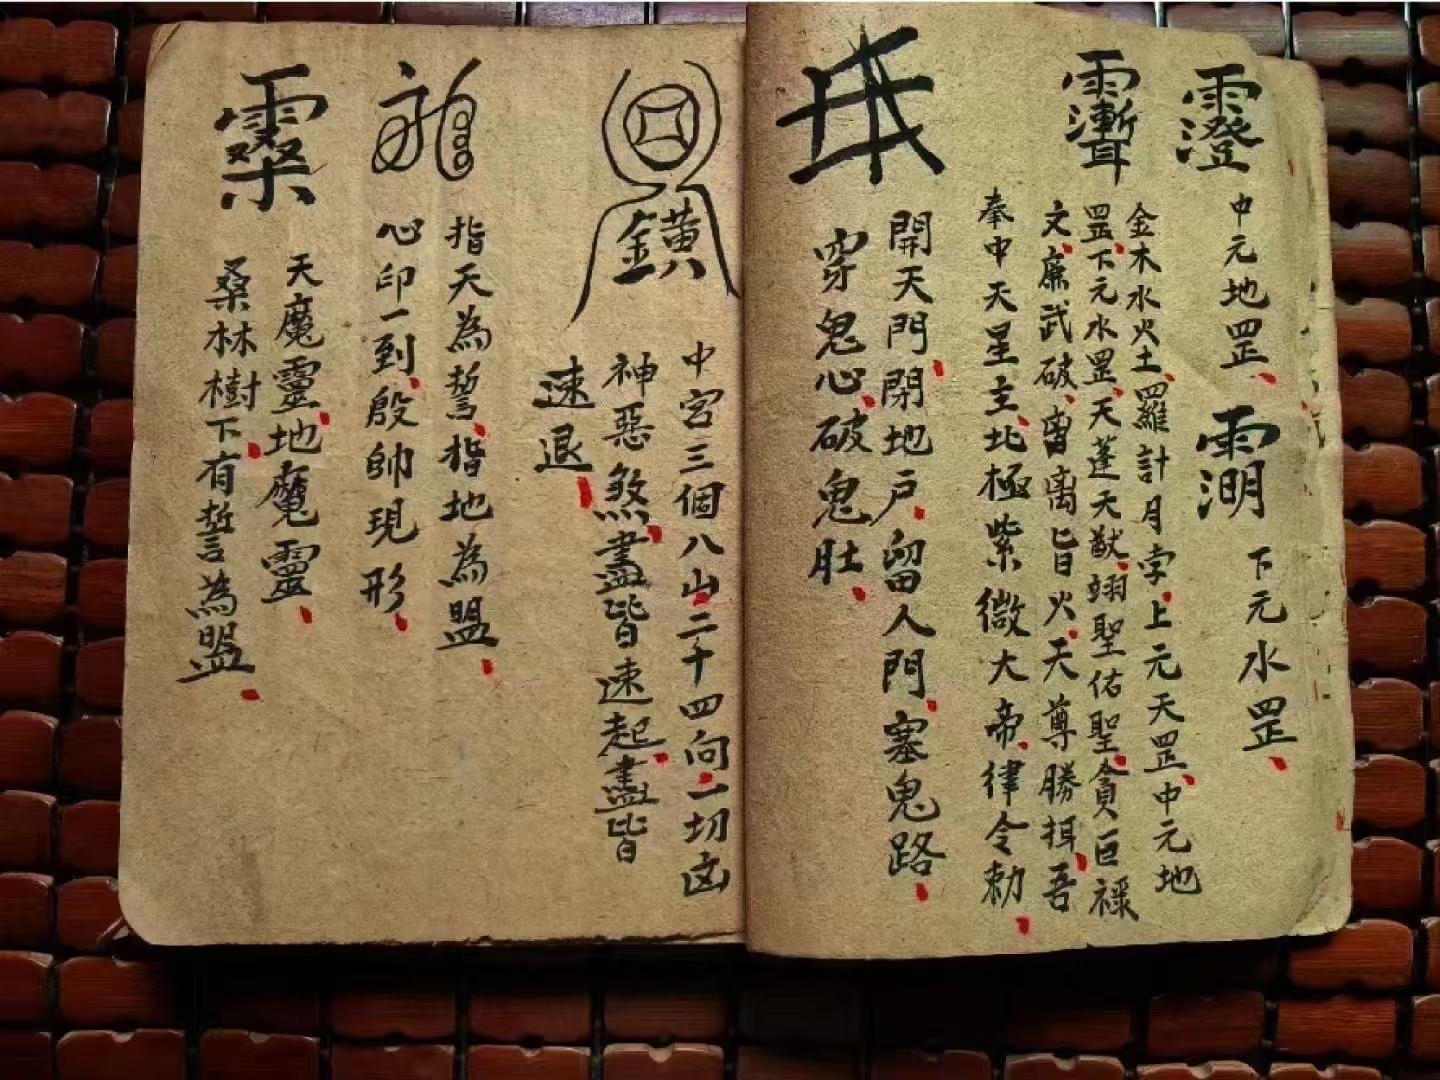 中元地罡、
下元水罡、
金木水火土、羅計月孛、上元天罡、中元地
罡、下元水罡、天蓬天猷、翊聖佑聖、貪巨祿
文、廉武破、
天尊勝揖、吾
奉中天星主、北極紫微大帝、律令勅、
開天門、閉地户、留人門、塞鬼路、
穿鬼心、破鬼肚、
鐄
中宮三個八山、二十四向、一切凶
神惡煞、盡皆速起、盡皆
速退、
指天為誓、指地為盟、
心印一到、殷帥現形、
天魔靈、地魔靈、
桑林樹下、有誓為盟、